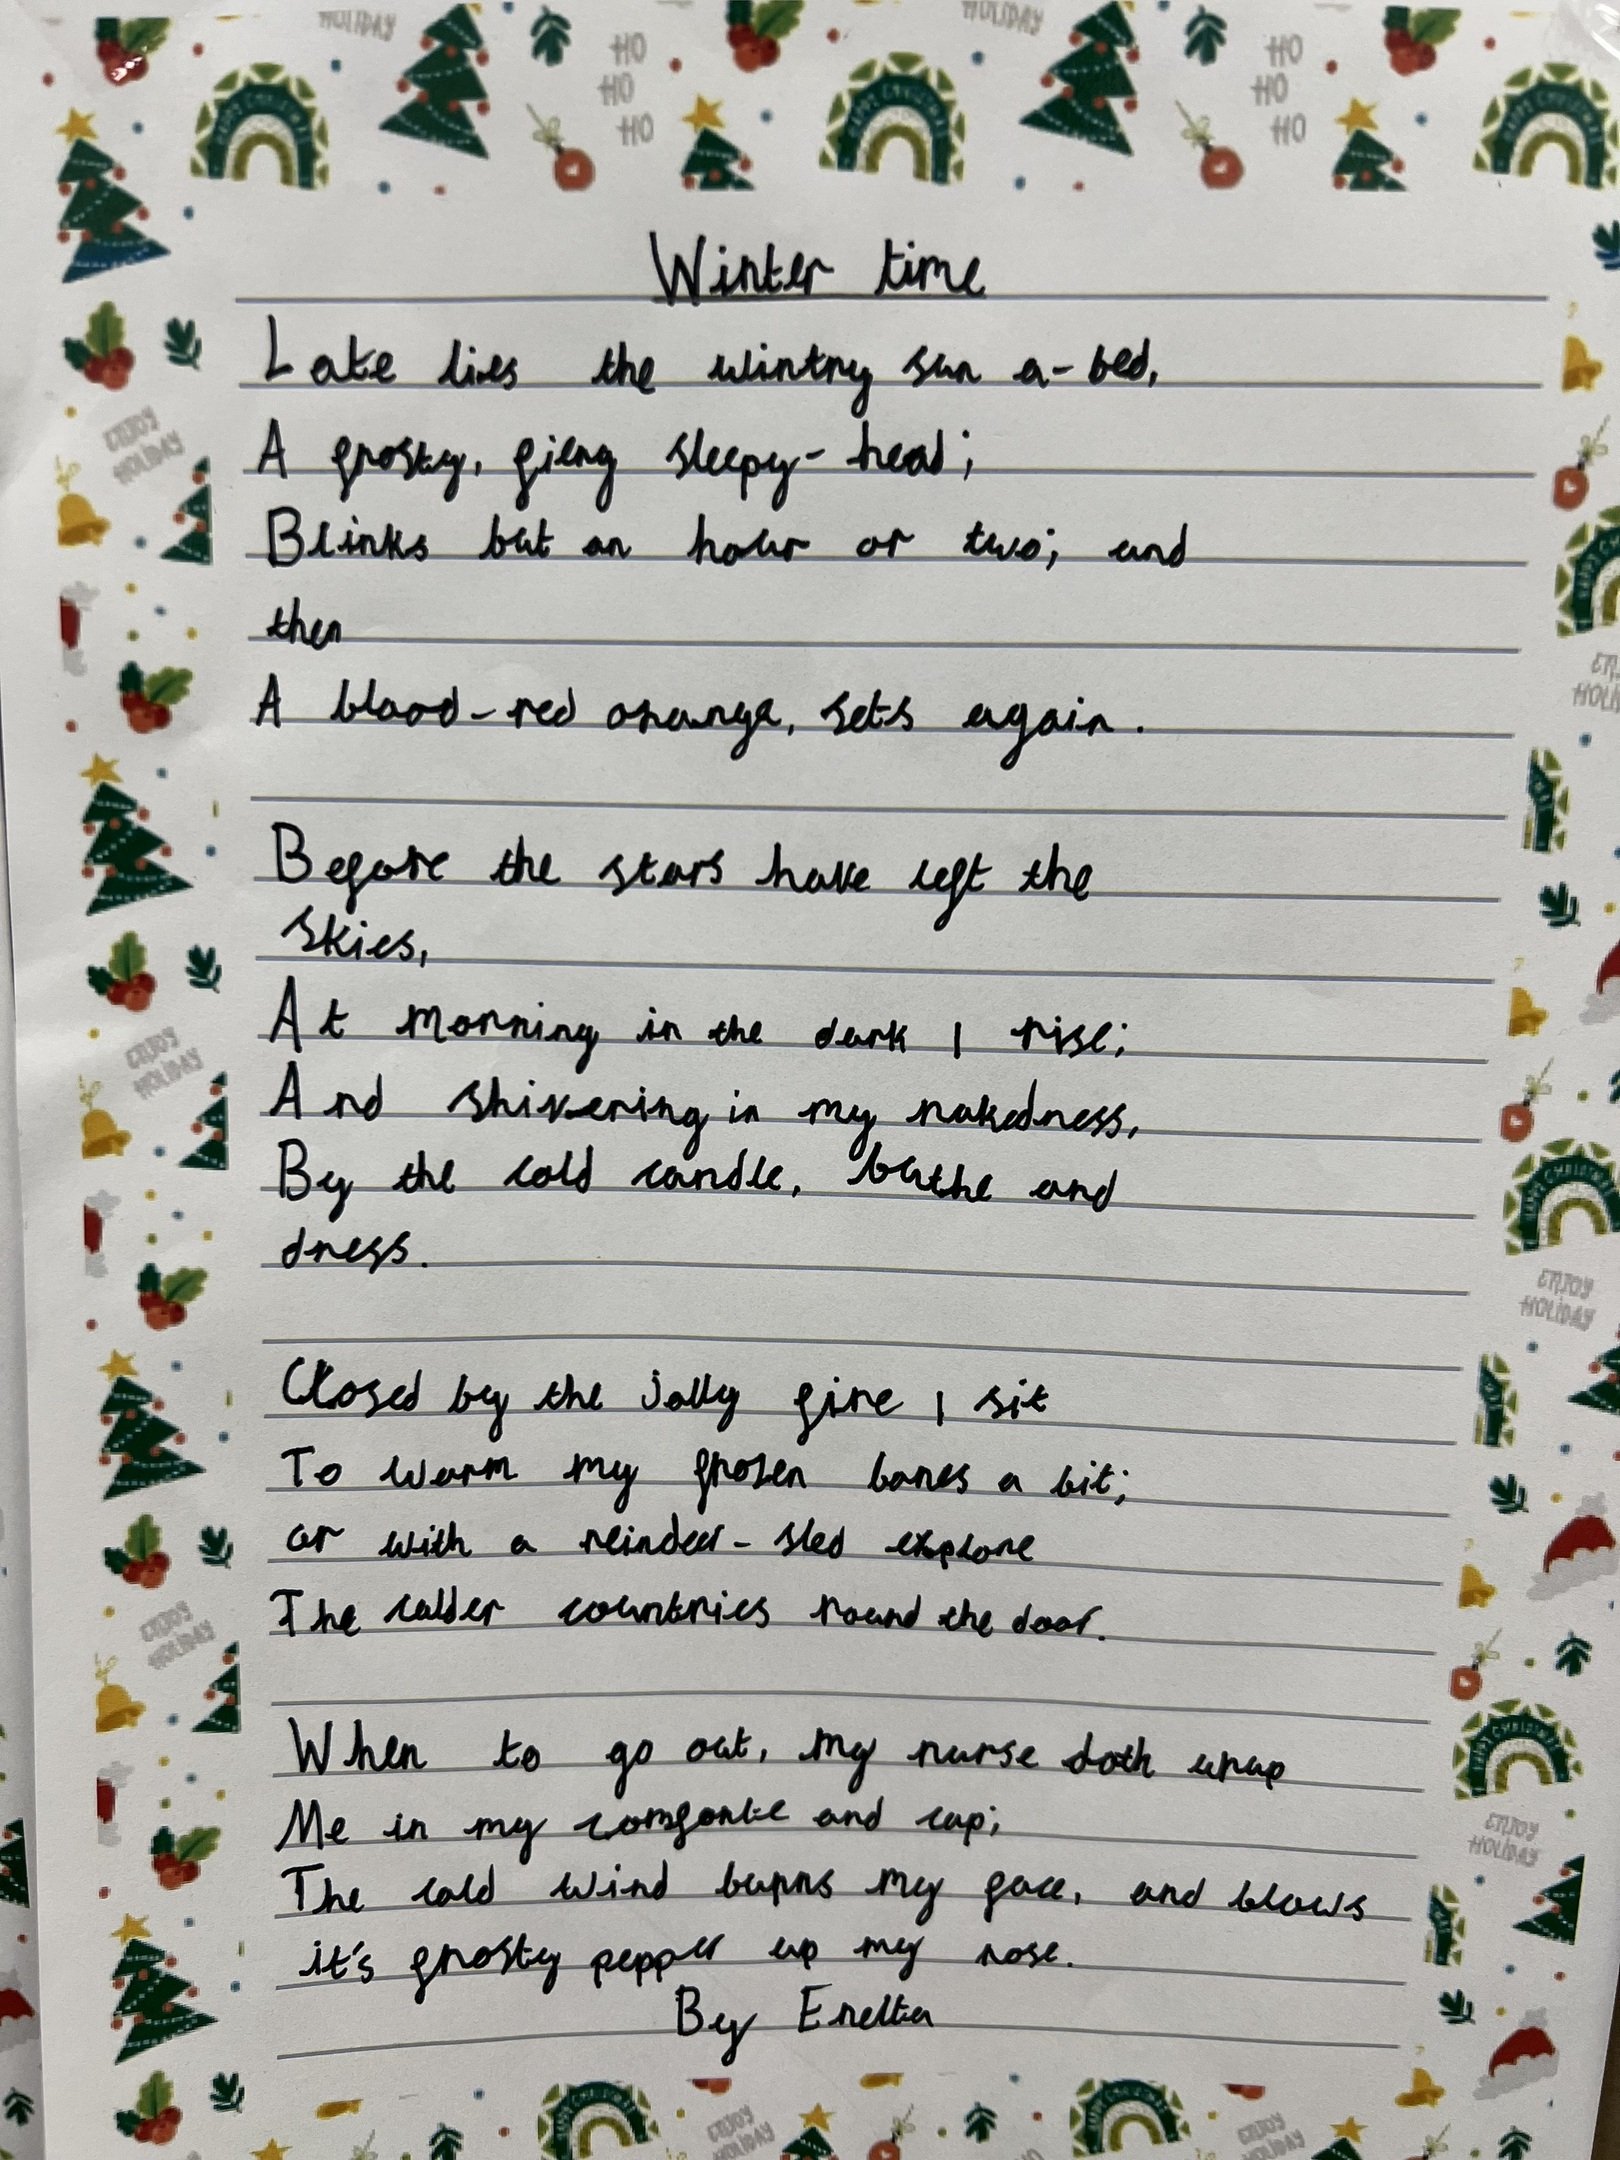 HOLIDAY
HOLIDAY
HO
HO
HO
HO
HO
HO
Winter time
Late lies the wintry sun a-bed,
A frosty, fiery sleepy-head;
Blinks but an hour or two; and
then
A blood-red orange, sets again.
Before the stars have left the
skies,
At morning in the dark I rise;
And shivering in my nakedness,
By the cold candle, bathe and
dress.
Closed by the jolly fire I sit
To warm my frozen bones a bit;
or with a reindeer-sled explore
The colder countries round the door.
When to go out, my nurse doth wrap
Me in my comforte and cap;
The cold wind burns my face, and blows
it's frosty pepper up my nose.
By
ENJOY
HOLIDAY
ENJOY
HOLIDAY
ENJOY
HOLIDAY
ENJOY
HOLIDAY
ENJOY
HOLIDAY
ENJOY
HOLIDAY
ENJOY
HOLIDAY